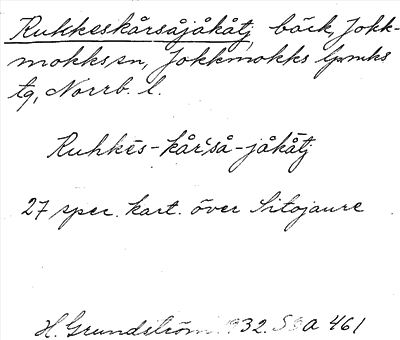 Ruhkeskårsåjåkåtj, bäck, Jokk-
mokks sn, Jokkmokks lpmks
tg, Norrb. l.
Ruhkēs-kår'så-jåkåtj
27 spec. kart. över Sitojaure
H. Grundström 1932. SOA 461